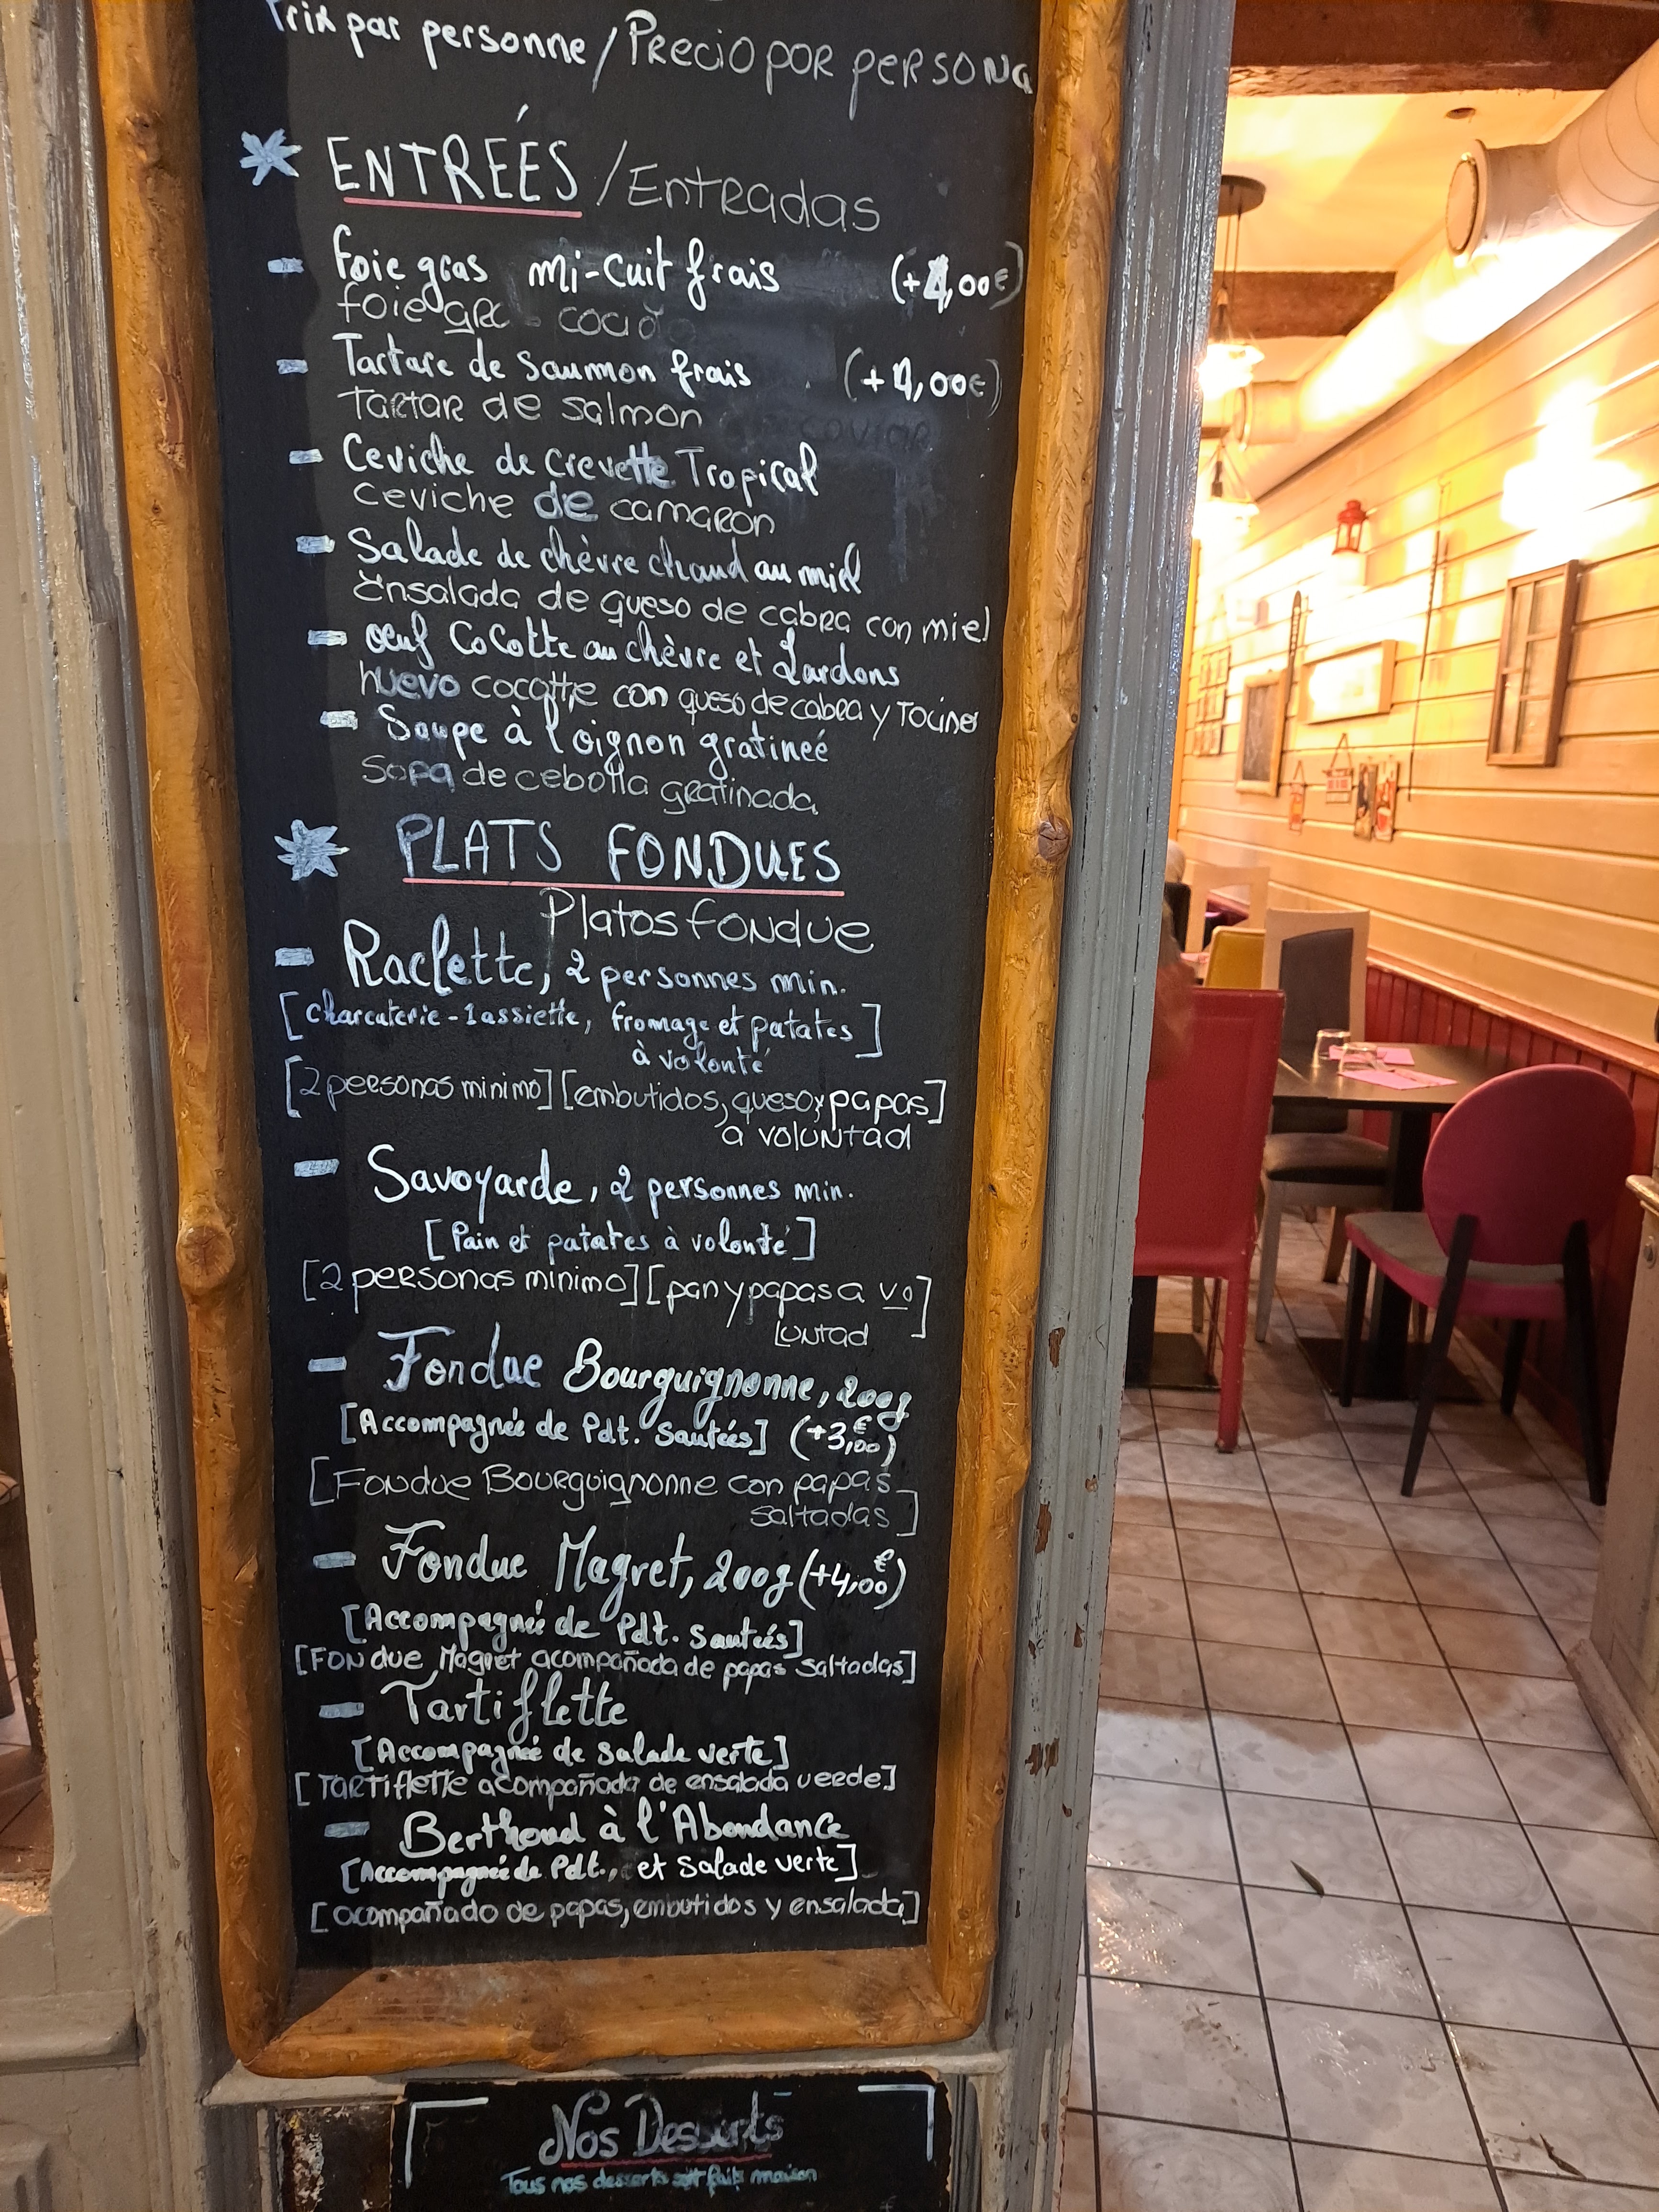 Prix par personne / Precio por persona
ENTREÉS / Entradas
- Foie gras mi-cuit frais (+4,00€)
foie gra
- Tartare de saumon frais (+4,00€)
Tartar de salmon
- Ceviche de crevette Tropical
ceviche de camaron
- Salade de chèvre chaud au miel
Ensalada de queso de cabra con miel
- oeuf Cocotte au chèvre et Lardons
huevo cocotte con queso de cabra y Tocino
- Soupe à l'oignon gratineé
Sopa de cebolla gratinada
PLATS FONDUES
Platos fondue
- Raclette, 2 personnes min.
[charcuterie - 1 assiette, fromage et patates]
à volonté
[2 personas minimo] [embutidos, queso y papas]
a voluntad
- Savoyarde, 2 personnes min.
[Pain et patates à volonté]
[2 personas minimo] [pan y papas a vo]
luntad
- Fondue Bourguignonne, 200g
[Accompagnée de Pdt. Sautées] (+3,00€)
[Fondue Bourguignonne con papas
saltadas]
- Fondue Magret, 200g (+4,00€)
[Accompagnée de Pdt. Sautées]
[Fondue Magret acompañada de papas saltadas]
- Tartiflette
[Accompagné de salade verte]
[Tartiflette acompañada de ensalada verde]
- Berthoud à l'Abondance
[Accompagnée de Pdt., et salade verte]
[acompañado de papas, embutidos y ensalada]
Nos Desserts
Tous nos desserts sont faits maison